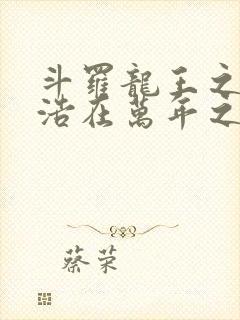 斗羅龍王之
浩在萬年之
蔡荣